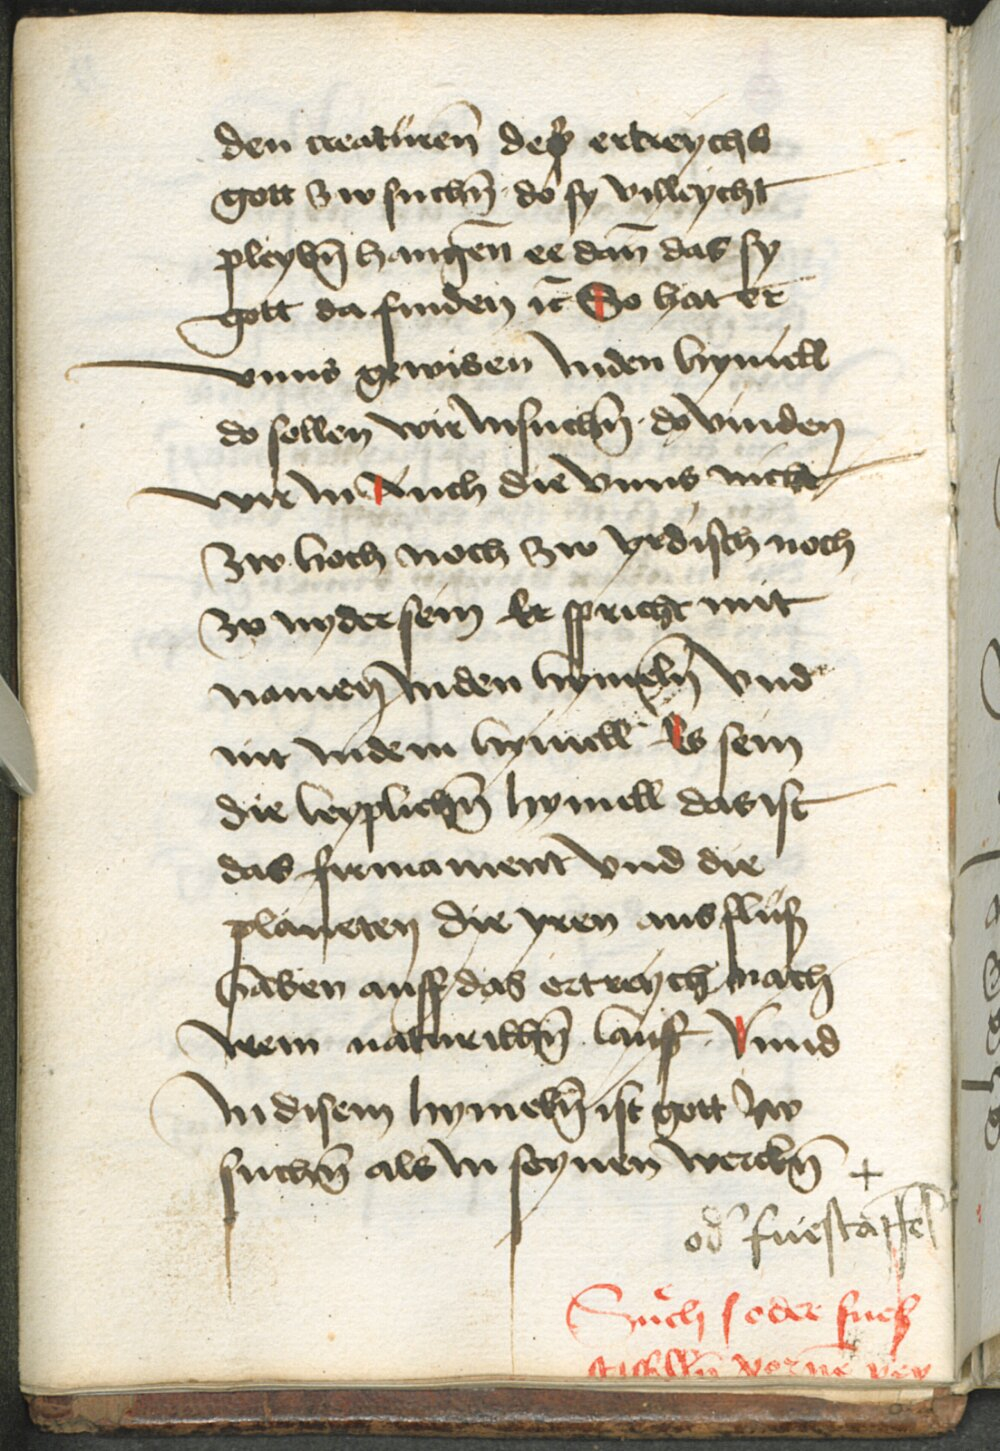 den creatüren̄ deß ertreychs
gott zw suchn̄ · do sy villeycht
pleybn̄ hangen̄ ee dan̄ das sy
gott da finden ic̄ So hat er
vnns gewisen Inden hymell
do sollen wir In suchn̄ · do vinden
wir In Auch die vnns nicht
zw hoch noch zw yrdisch noch
zw nyder sein Er spricht mit
namen Inden hymeln̄ vnd
nit Indem hymell Es sein
die leyplichn̄ hymell das ist
das firmament vnd die
planeten die yren ausflus
haben auff das ertreych nach
yrem naturlichn̄ lauff · Vnnd
In disem hymeln̄ ist gott zw
suchn̄ als In seynen werckn̄ +
od' fuestaffel
Such oder fueß